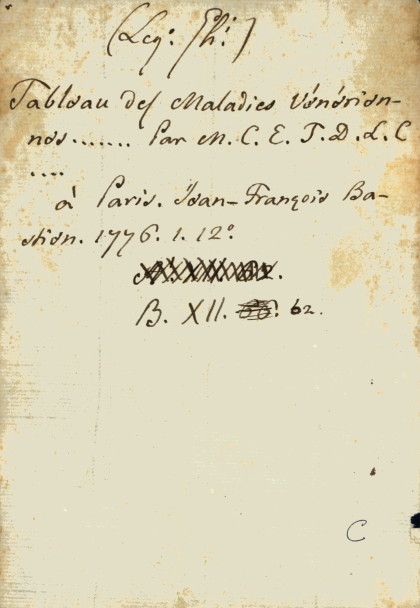 (Leg: Ph:)
Tableau des Maladies Vénérien-
nes....... Par M. C. E. T. D. L. C
....
à Paris. Jean-François Ba-
stion. 1776. 1. 12°.
B. XII. 62.
C